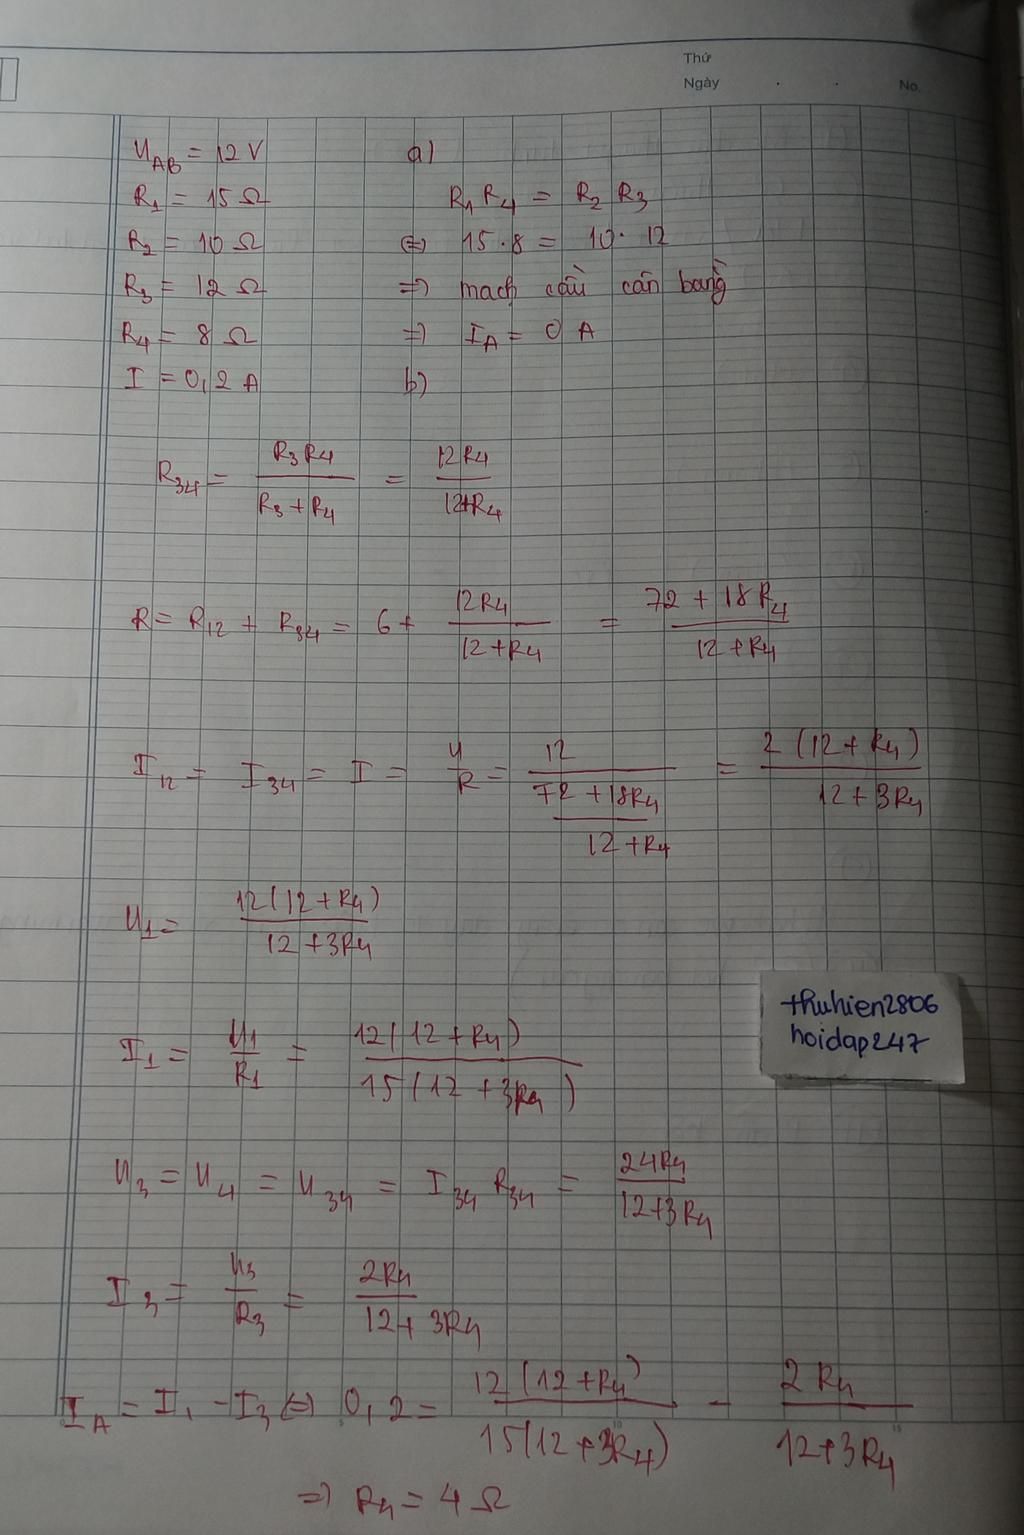 Thứ
Ngày . . No.
U_AB = 12 V a)
R₁ = 15 Ω R₁ R₄ = R₂ R₃
R₂ = 10 Ω ⇔ 15 . 8 = 10 . 12
R₃ = 12 Ω ⇒ mạch cầu cân bằng
R₄ = 8 Ω ⇒ I_A = 0 A
I = 0,2 A b)
R₃₄ = R₃R₄ / (R₃ + R₄) = 12R₄ / (12+R₄)
R = R₁₂ + R₃₄ = 6 + 12R₄ / (12+R₄) = (72 + 18R₄) / (12 + R₄)
I₁₂ = I₃₄ = I = U / R = 12 / ((72 + 18R₄) / (12 + R₄)) = 2(12 + R₄) / (12 + 3R₄)
U₁ = 12(12 + R₄) / (12 + 3R₄)
thuhien2806
hoidap247
I₁ = U₁ / R₁ = 12(12 + R₄) / 15(12 + 3R₄)
U₃ = U₄ = U₃₄ = I₃₄ R₃₄ = 24R₄ / (12+3R₄)
I₃ = U₃ / R₃ = 2R₄ / (12 + 3R₄)
I_A = I₁ - I₃ ⇔ 0,2 = 12(12 + R₄) / 15(12 + 3R₄) - 2R₄ / (12+3R₄)
⇒ R₄ = 4 Ω